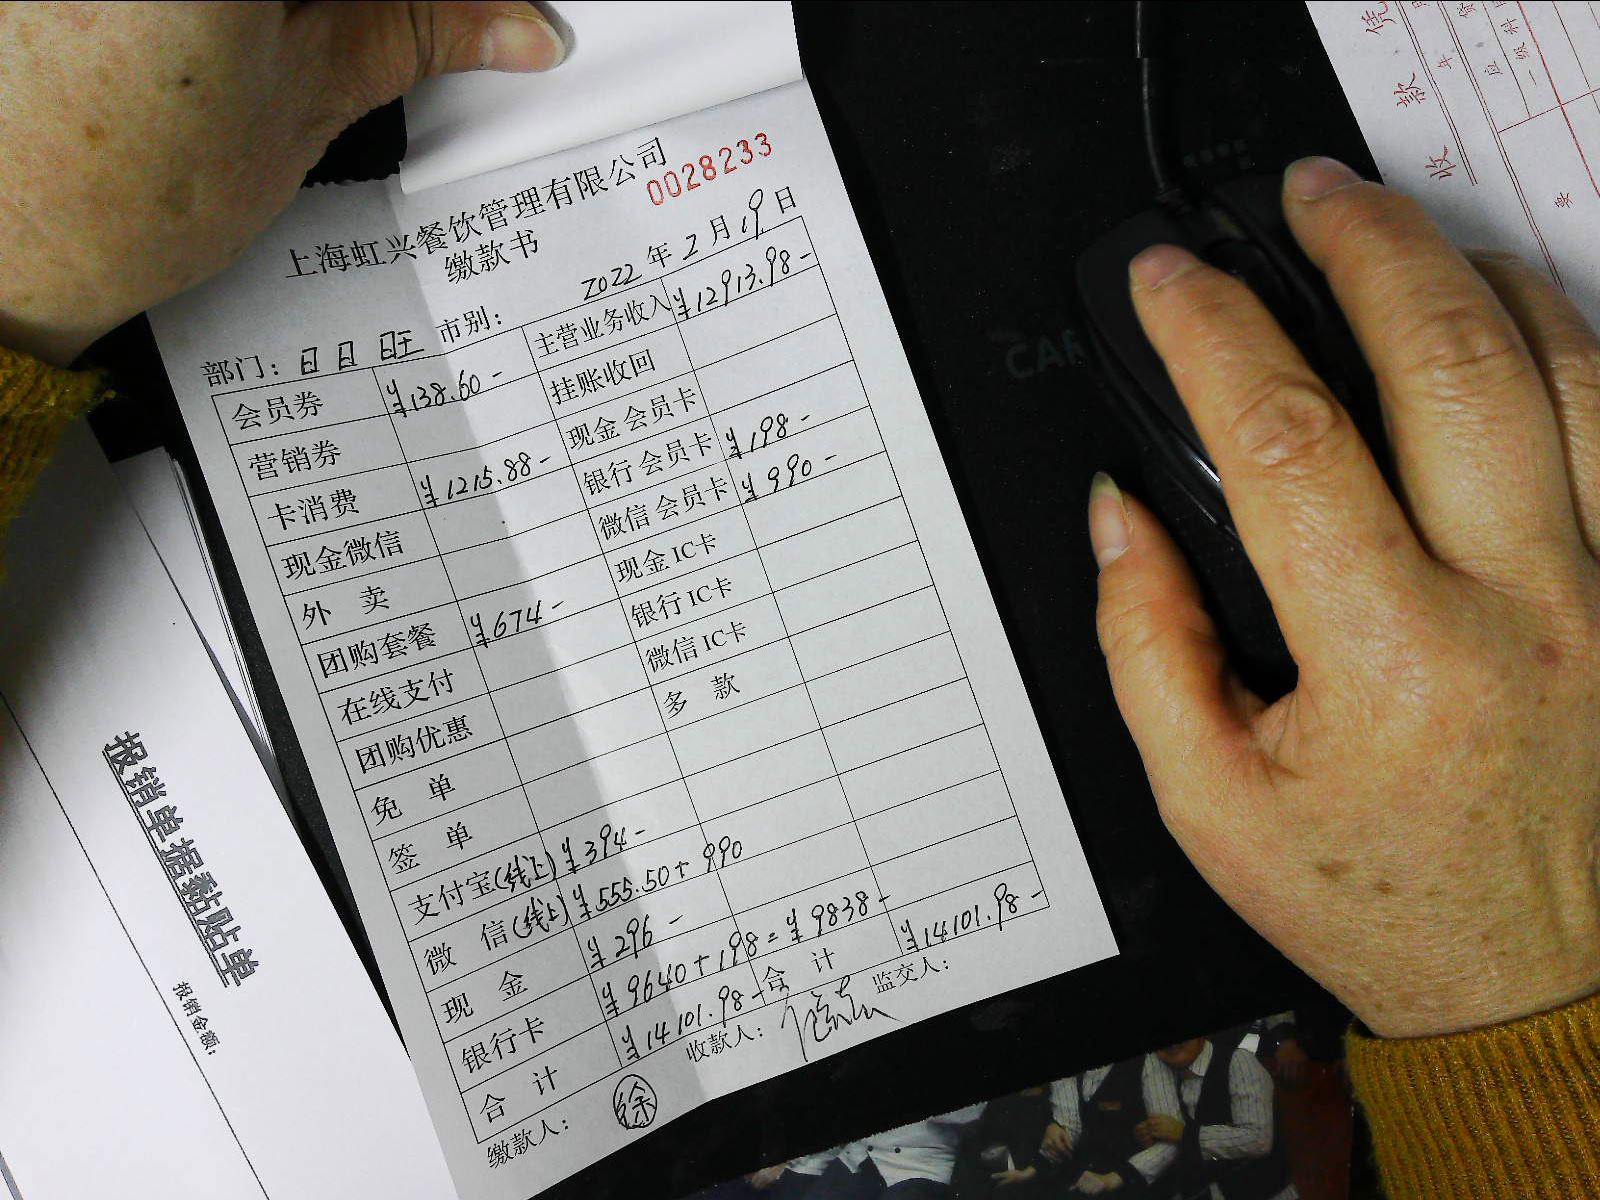 上海虹兴餐饮管理有限公司
0028233
缴款书
2022 年 2 月 19 日
部门: 日日旺 市别:
会员券 ¥138.60- 主营业务收入 ¥12913.98-
营销券 挂账收回
卡消费 ¥1215.88- 现金 会员卡
现金微信 银行 会员卡 ¥198-
外 卖 微信 会员卡 ¥990-
团购套餐 ¥674- 现金 IC卡
在线支付 银行 IC卡
团购优惠 微信 IC卡
免 单 多 款
签 单
支付宝(线上) ¥394-
微 信(线上) ¥555.50+990
现 金 ¥296-
银行卡 ¥9640+198=¥9838-
合 计 ¥14101.98- 合 计 ¥14101.98-
缴款人: 徐 收款人: 监交人:
报销单据黏贴单
报销金额:
收 款 凭
年
应
一级科
要
CAR